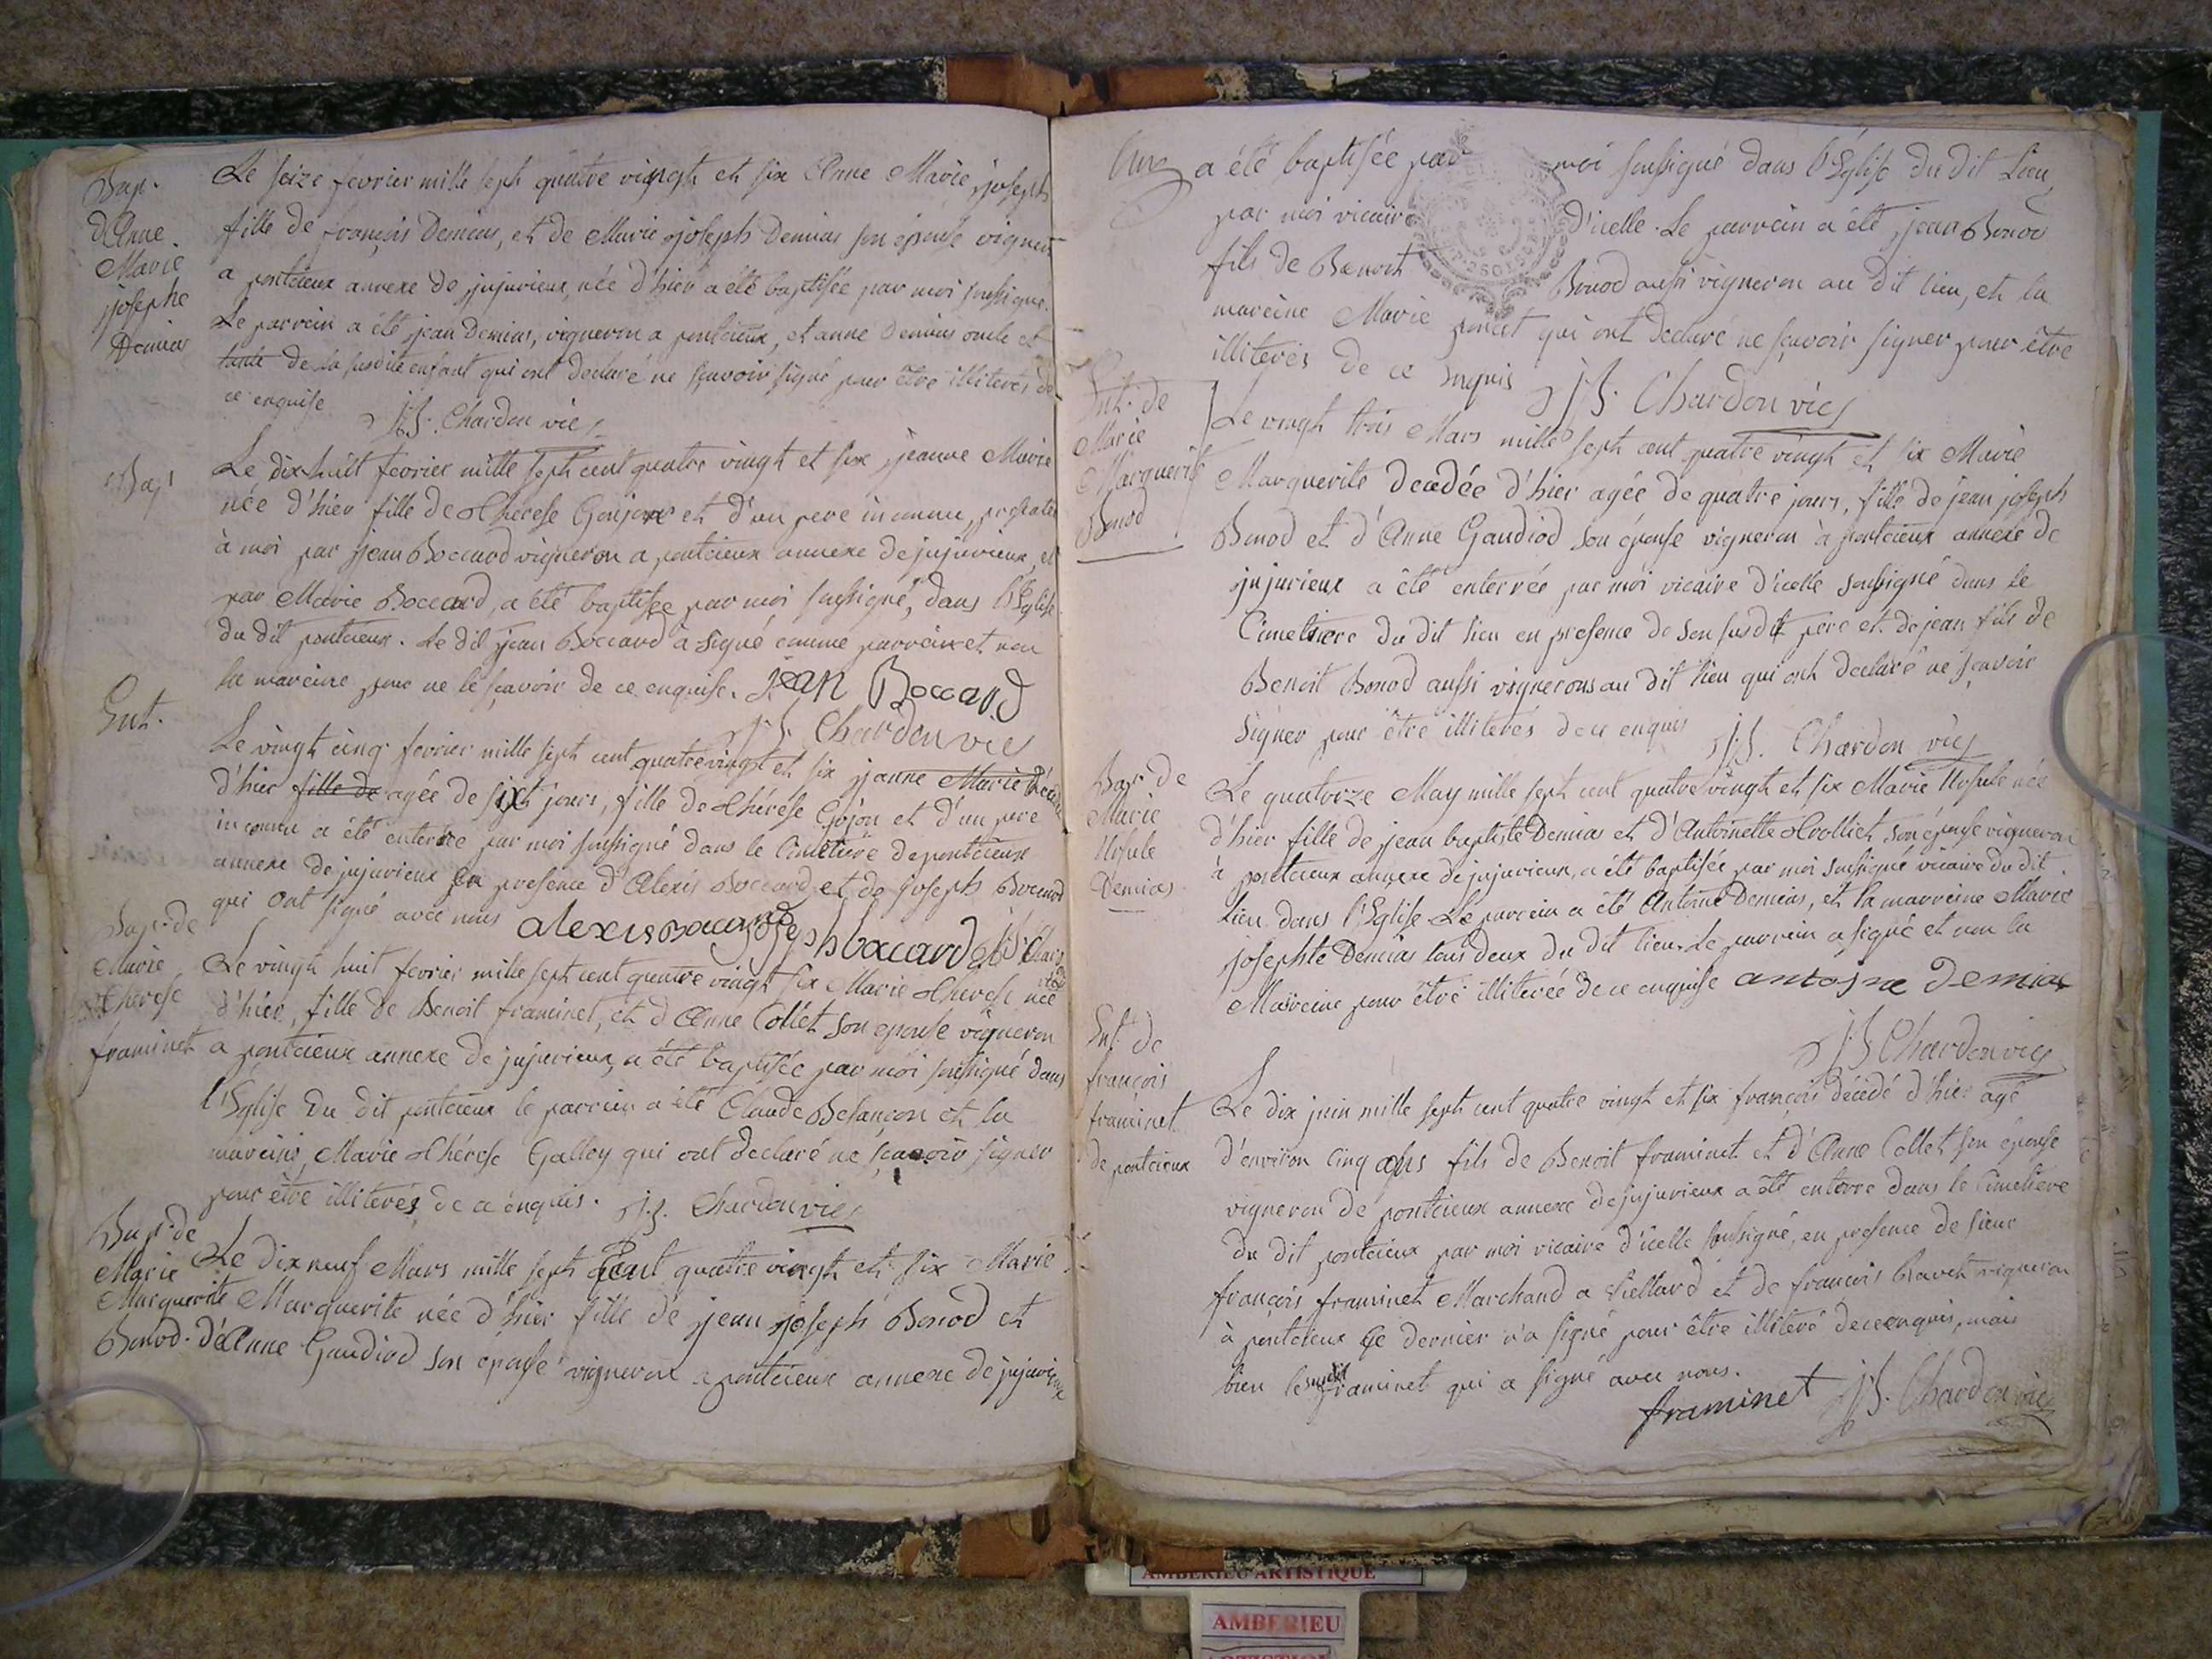 Bap.
d'Anne
Marie
josephe
Demias
Le seize fevrier mille sept quatre vingt et six Anne Marie joseph
fille de françois Demias, et de Marie joseph Demias son épouse vigneron
a pontcieux annexe de jujurieux, née d'hier a été baptisée par moi soussigné.
Le parrein a été jean Demias, vigneron a pontcieux, et anne Demias oncle et
tante de la susdite enfant qui ont declaré ne sçavoir signé pour être illiterés de
ce enquise J:B. Chardon vic
Bap
Le dix-huit fevrier mille sept cent quatre vingt et six jeanne Marie
née d'hier fille de Therese Goujon et d'un pere inconnu, presentée
à moi par jean Boccard vigneron a pontcieux annexe de jujurieux, et
par Marie Boccard, a été baptisée par moi soussigné, dans l'Eglise
du dit pontcieux. Le dit jean Boccard à signé comme parrein et non
la mareine pour ne le sçavoir de ce enquise. jean Boccard
J:B. Chardon vic
Ent.
Le vingt cinq fevrier mille sept cent quatre vingt et six jeanne Marie décédée
d'hier fille de agée de sixt jours, fille de Thérese Gojon et d'un pere
inconnu a été enterrée par moi soussigné dans le Cimetiére de pontcieux
annexe de jujurieux en presence d'Alexis Boccard et de joseph Boccard
qui ont signé avec nous alexis Boccard joseph bocard J:B. Chardon
Bap. de
Marie
Therese
framinet
Le vingh huit fevrier mille sept cent quatre vingt six Marie Therese née
d'hier, fille de Benoit framinet, et d'Anne Collet son epouse vigneron
a pontcieux annexe de jujurieux, a été baptisée par moi soussigné dans
l'Eglise du dit pontcieux le parrein a été Claude Besançon et la
mareine, Marie Thérese Galley qui ont declaré ne sçavoir signer
pour être illiterés de ce enquis. J:B. Chardon vic
Bap. de
Marie
Marguerite
Bonod.
Le dix neuf Mars mille sept cent quatre vingt et six Marie
Marguerite née d'hier fille de jean joseph Bonod et
d'Anne Gaudiod son épouse vigneron a pontcieux annexe de jujurieux
a été baptisée par moi soussigné dans l'Eglise du dit Lieu,
par moi vicaire d'icelle. Le parrein a été jean Bonod
fils de Benoit Bonod aussi vigneron au dit lieu, et la
mareine Marie poncet qui ont declaré ne sçavoir signer pour être
illiterés de ce enquis J:B. Chardon vic
Ent. de
Marie
Marguerite
Bonod
Le vingt trois Mars mille sept cent quatre vingt et six Marie
Marguerite decedée d'hier agée de quatre jours, fille de jean joseph
Bonod et d'Anne Gaudiod son épouse vigneron à pontcieux annexe de
jujurieux a été enterrée par moi vicaire d'icelle soussigné dans le
Cimetiere du dit lieu en presence de son susdit père et de jean fils de
Benoit Bonod aussi vignerons au dit lieu qui ont declaré ne sçavoir
signer pour être illiterés de ce enquis J:B. Chardon vic
Bap. de
Marie
Ursule
Demias
Le quatorze May mille sept cent quatre vingt et six Marie Ursule née
d'hier fille de jean baptiste Demias et d'Antoinette Trolliet son épouse vigneron
à pontcieux annexe de jujurieux, a été baptisée par moi soussigné vicaire du dit
lieu dans l'Eglise. Le parrein a été Antoine Demias, et la marreine Marie
josephte Demias tous deux du dit lieu. Le parrein a signé et non la
Marreine pour être illiterée de ce enquise antoine demias
J:B Chardon vic
Ent. de
françois
framinet
de pontcieux
Le dix juin mille sept cent quatre vingt et six françois décédé d'hier agé
d'environ cinq ans fils de Benoit framinet et d'Anne Collet son épouse
vigneron de pontcieux annexe de jujurieux a été enterré dans le Cimetiere
du dit pontcieux par moi vicaire d'icelle soussigné, en presence de sieur
françois framinet Marchand a Viellard et de françois Bravet vigneron
à pontcieux Ce dernier n'a signé pour être illiteré de ce enquis, mais
bien le susdit framinet qui a signé avec nous.
framinet J:B. Chardon vic
AMBERIEU ARTISTIQUE
AMBERIEU
ARTISTIQUE